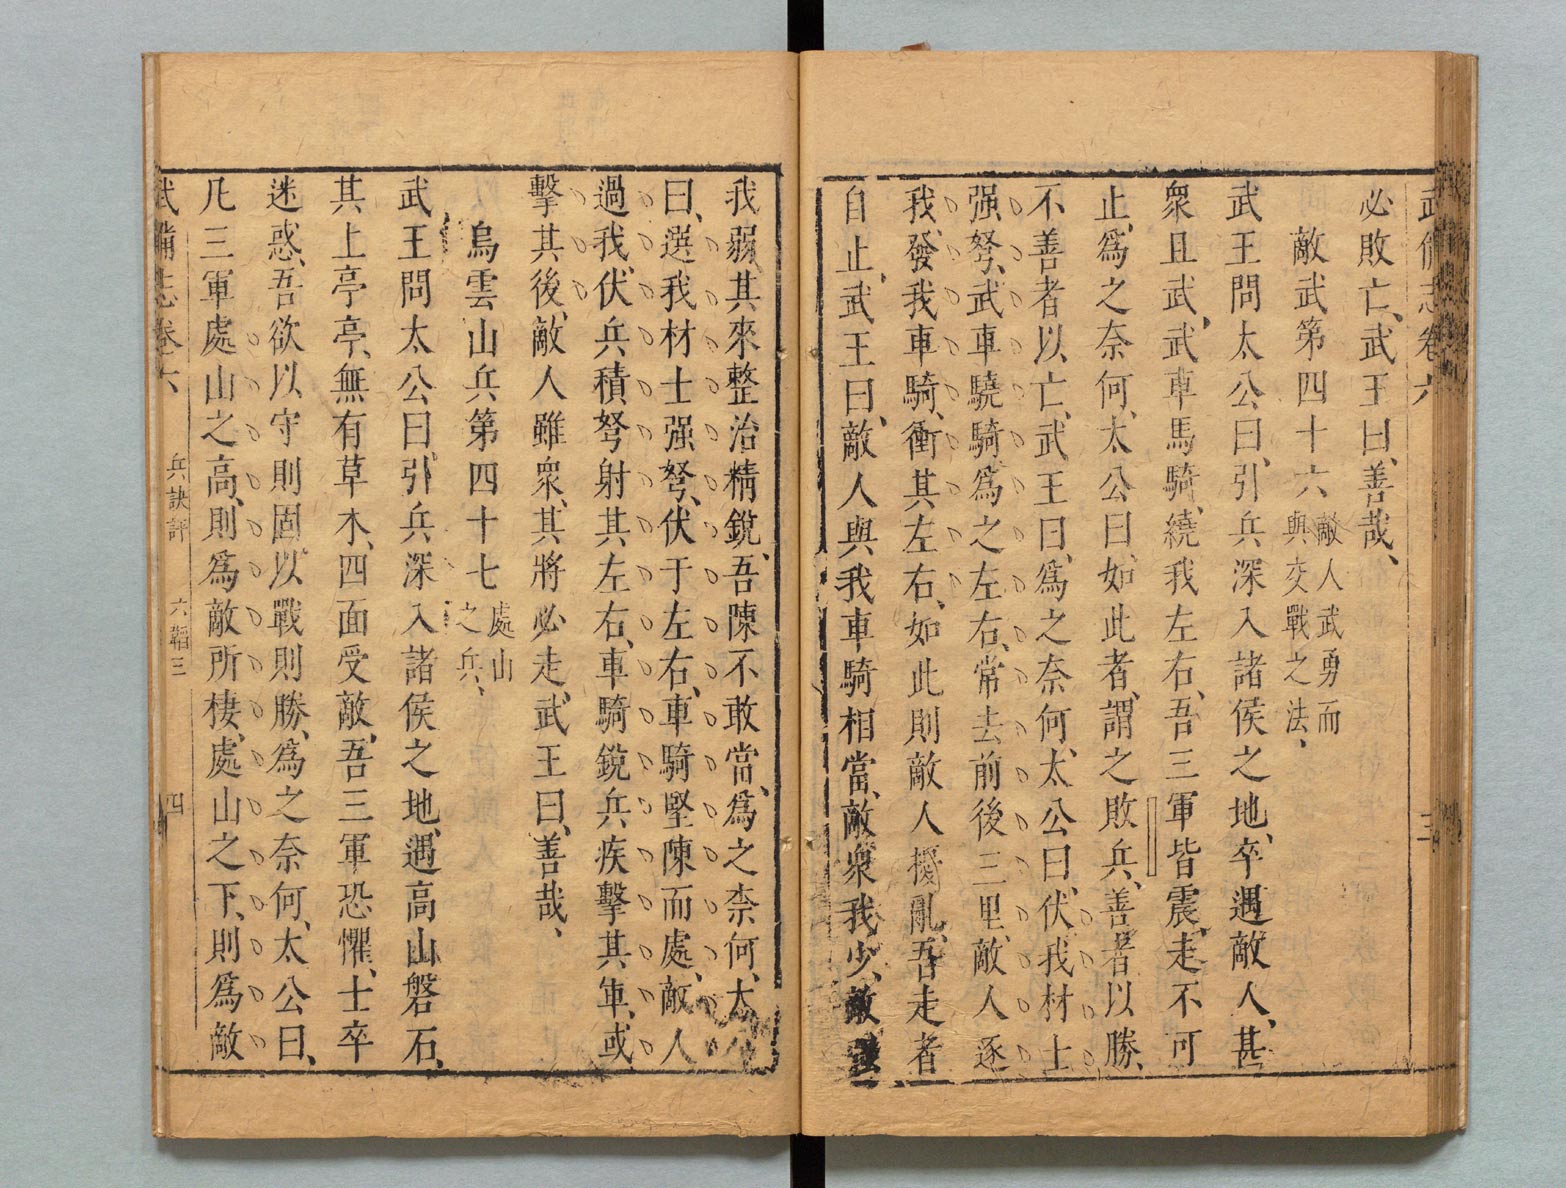 武備志卷六
三
必敗亡、武王曰、善哉、
敵武第四十六 敵人武勇而與交戰之法、
武王問太公曰、引兵深入諸侯之地、卒遇敵人、甚
衆且武、武車馬騎、繞我左右、吾三軍皆震、走不可
止、爲之奈何、太公曰、如此者、謂之敗兵、善者以勝、
不善者以亡、武王曰、爲之奈何、太公曰、伏我材士
强弩、武車驍騎、爲之左右、常去前後三里、敵人逐
我、發我車騎、衝其左右、如此則敵人擾亂、吾走者
自止、武王曰、敵人與我車騎相當、敵衆我少、敵强
我弱、其來整治精銳、吾陳不敢當、爲之柰何、太公
曰、選我材士强弩、伏于左右、車騎堅陳而處、敵人
過我伏兵、積弩射其左右、車騎銳兵疾擊其軍、或
擊其後、敵人雖衆、其將必走、武王曰、善哉、
烏雲山兵第四十七 處山之兵、
武王問太公曰、引兵深入諸侯之地、遇高山磐石、
其上亭亭、無有草木、四面受敵、吾三軍恐懼、士卒
迷惑、吾欲以守則固、以戰則勝、爲之奈何、太公曰、
凡三軍處山之高、則爲敵所棲、處山之下、則爲敵
武備志卷六
兵訣評 六韜三
四